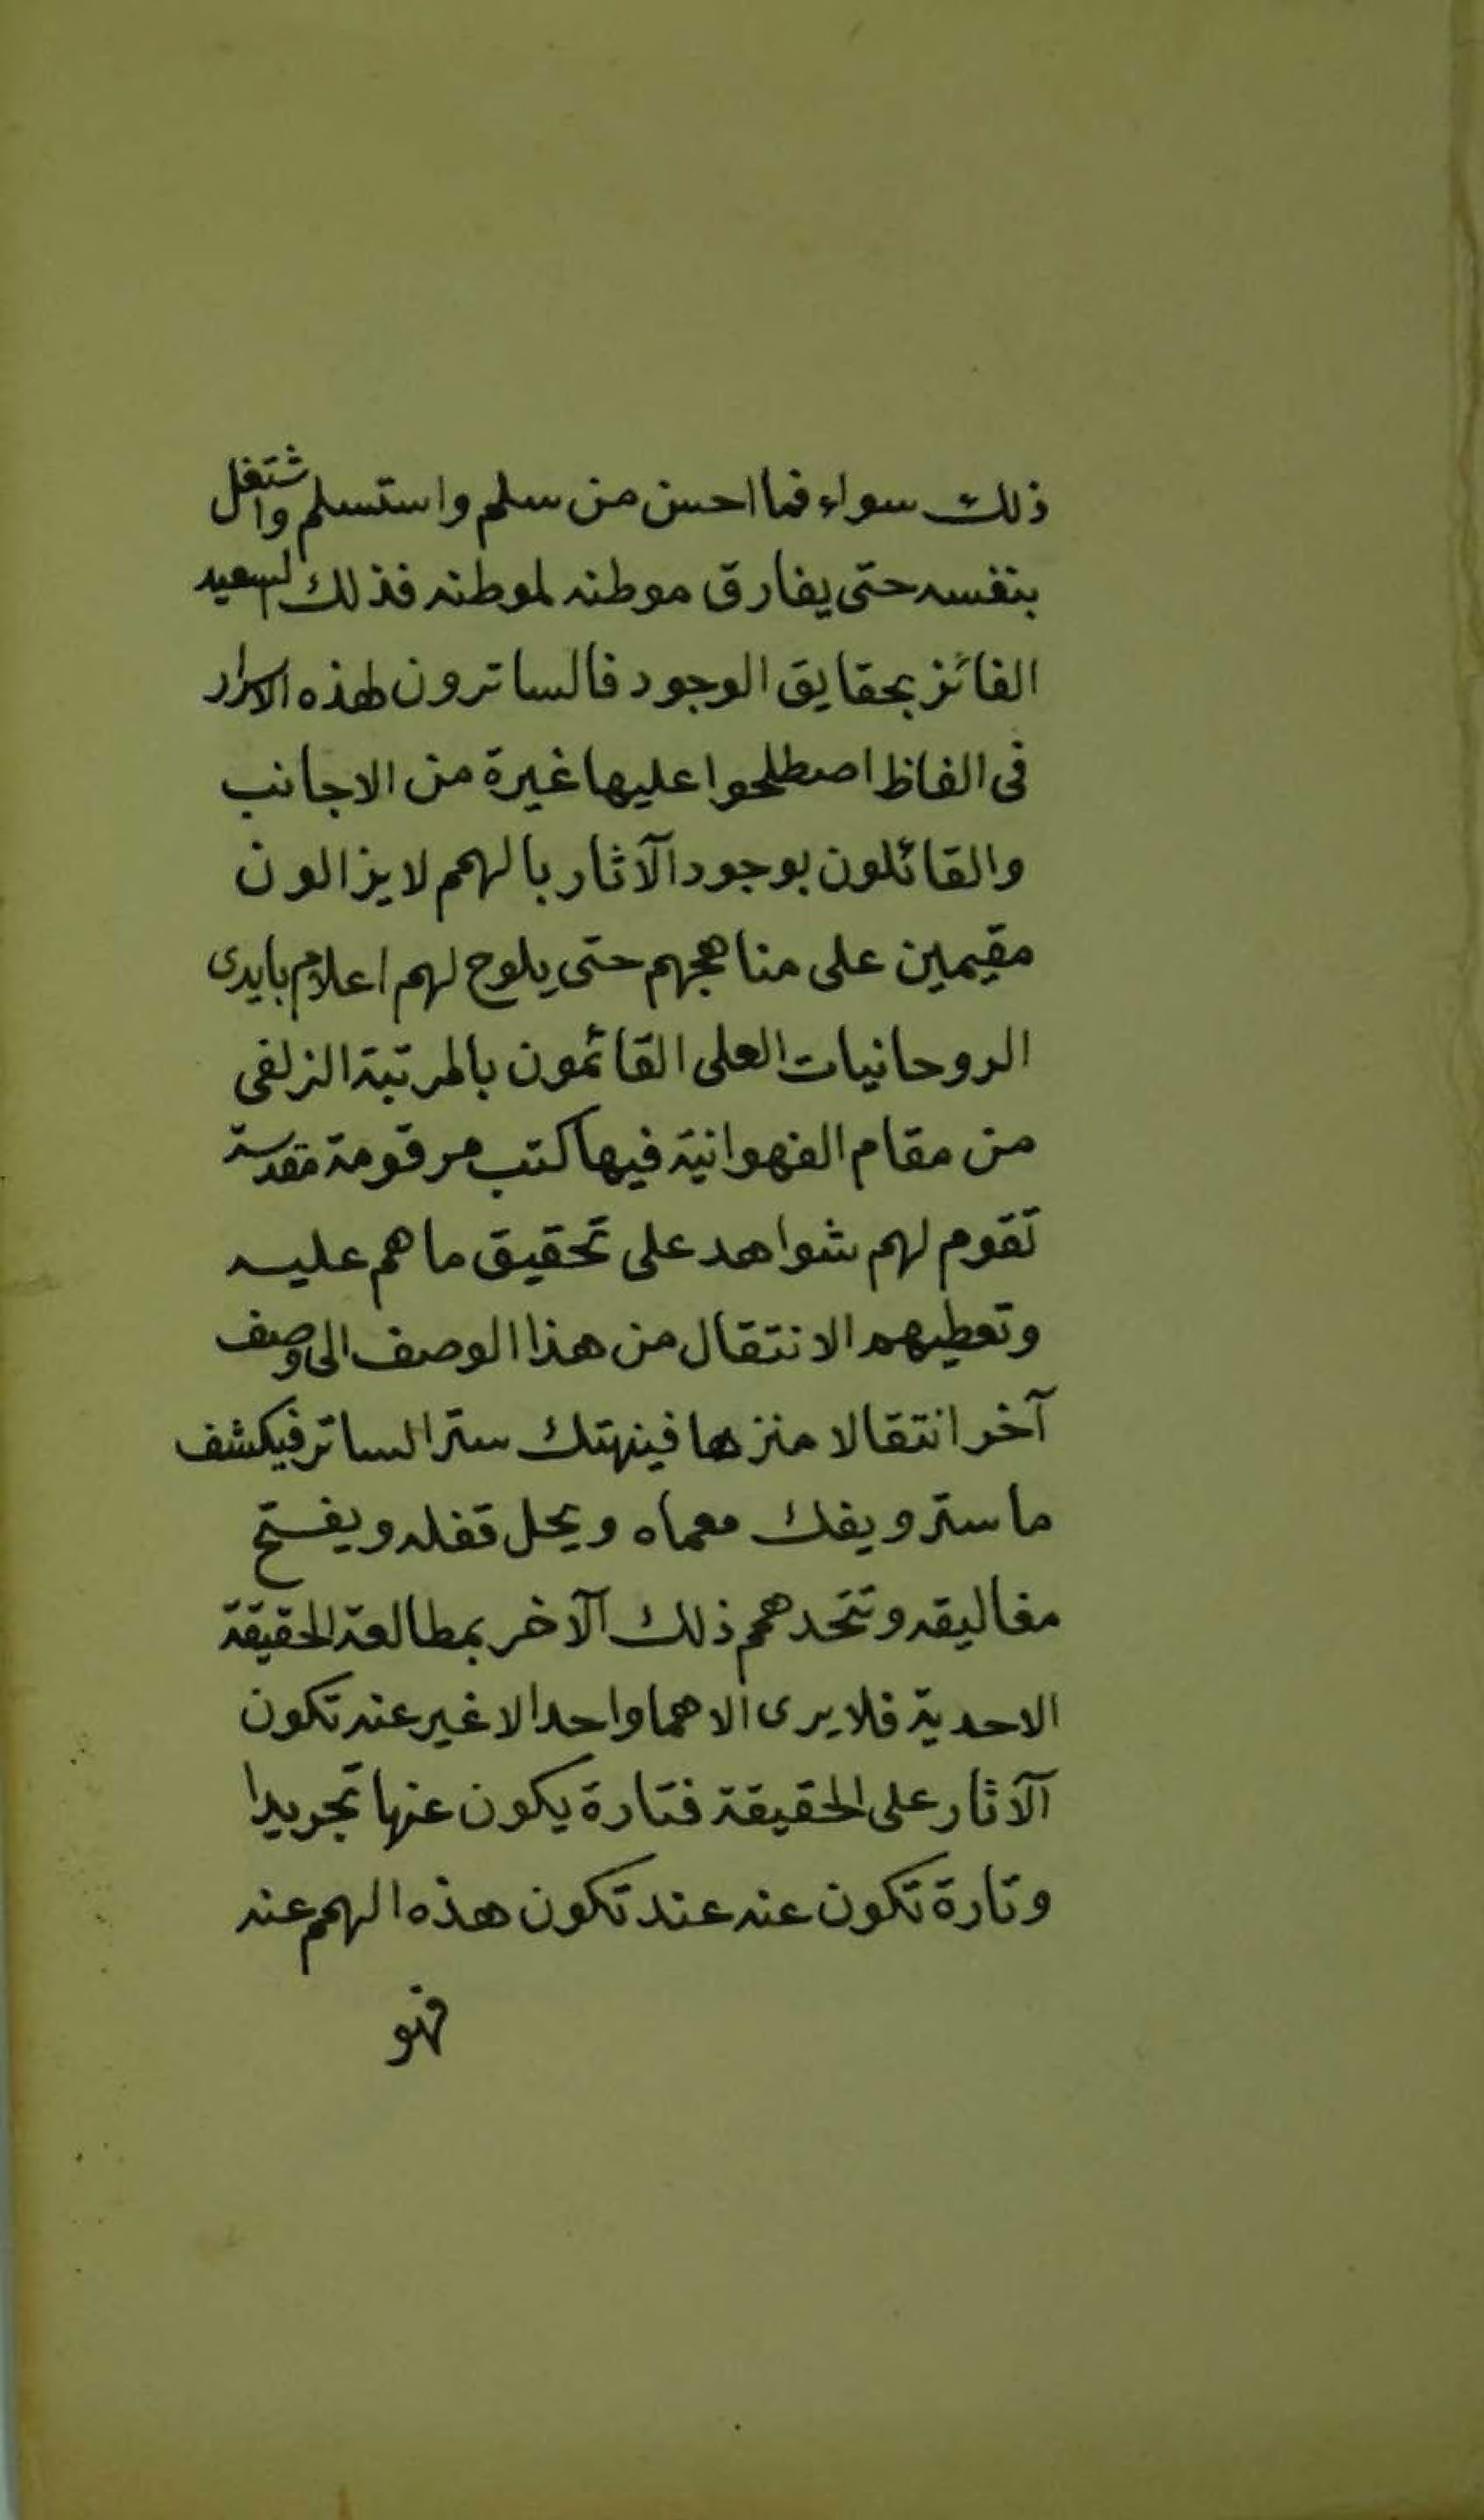 ذلك سواء فما احسن من سلم واستسلم واشتغل
بنفسه حتى يفارق موطنه لموطنه فذلك السعيد
الفائز بحقايق الوجود فالساترون لهذه الاسرار
فى الفاظ اصطلحوا عليها غيرة من الاجانب
والقائلون بوجود الآثار بالهمم لا يزالون
مقيمين على مناهجهم حتى يلوح لهم اعلام بايدى
الروحانيات العلى القائمون بالمرتبة الزلفى
من مقام الفهوانية فيها كتب مرقومة مقدسة
تقوم لهم شواهد على تحقيق ما هم عليه
وتعطيهم الانتقال من هذا الوصف الى وصف
آخر انتقالا منزها فينهتك ستر الساتر فيكشف
ما ستر ويفك معماه ويحل قفله ويفتح
مغاليقه وتتحد همم ذلك الآخر بمطالعة الحقيقة
الاحدية فلا يرى الا هما واحدا لا غير عنه تكون
الآثار على الحقيقة فتارة يكون عنها تجريدا
وتارة تكون عنه عند تكون هذه الهمم عنه
فهو